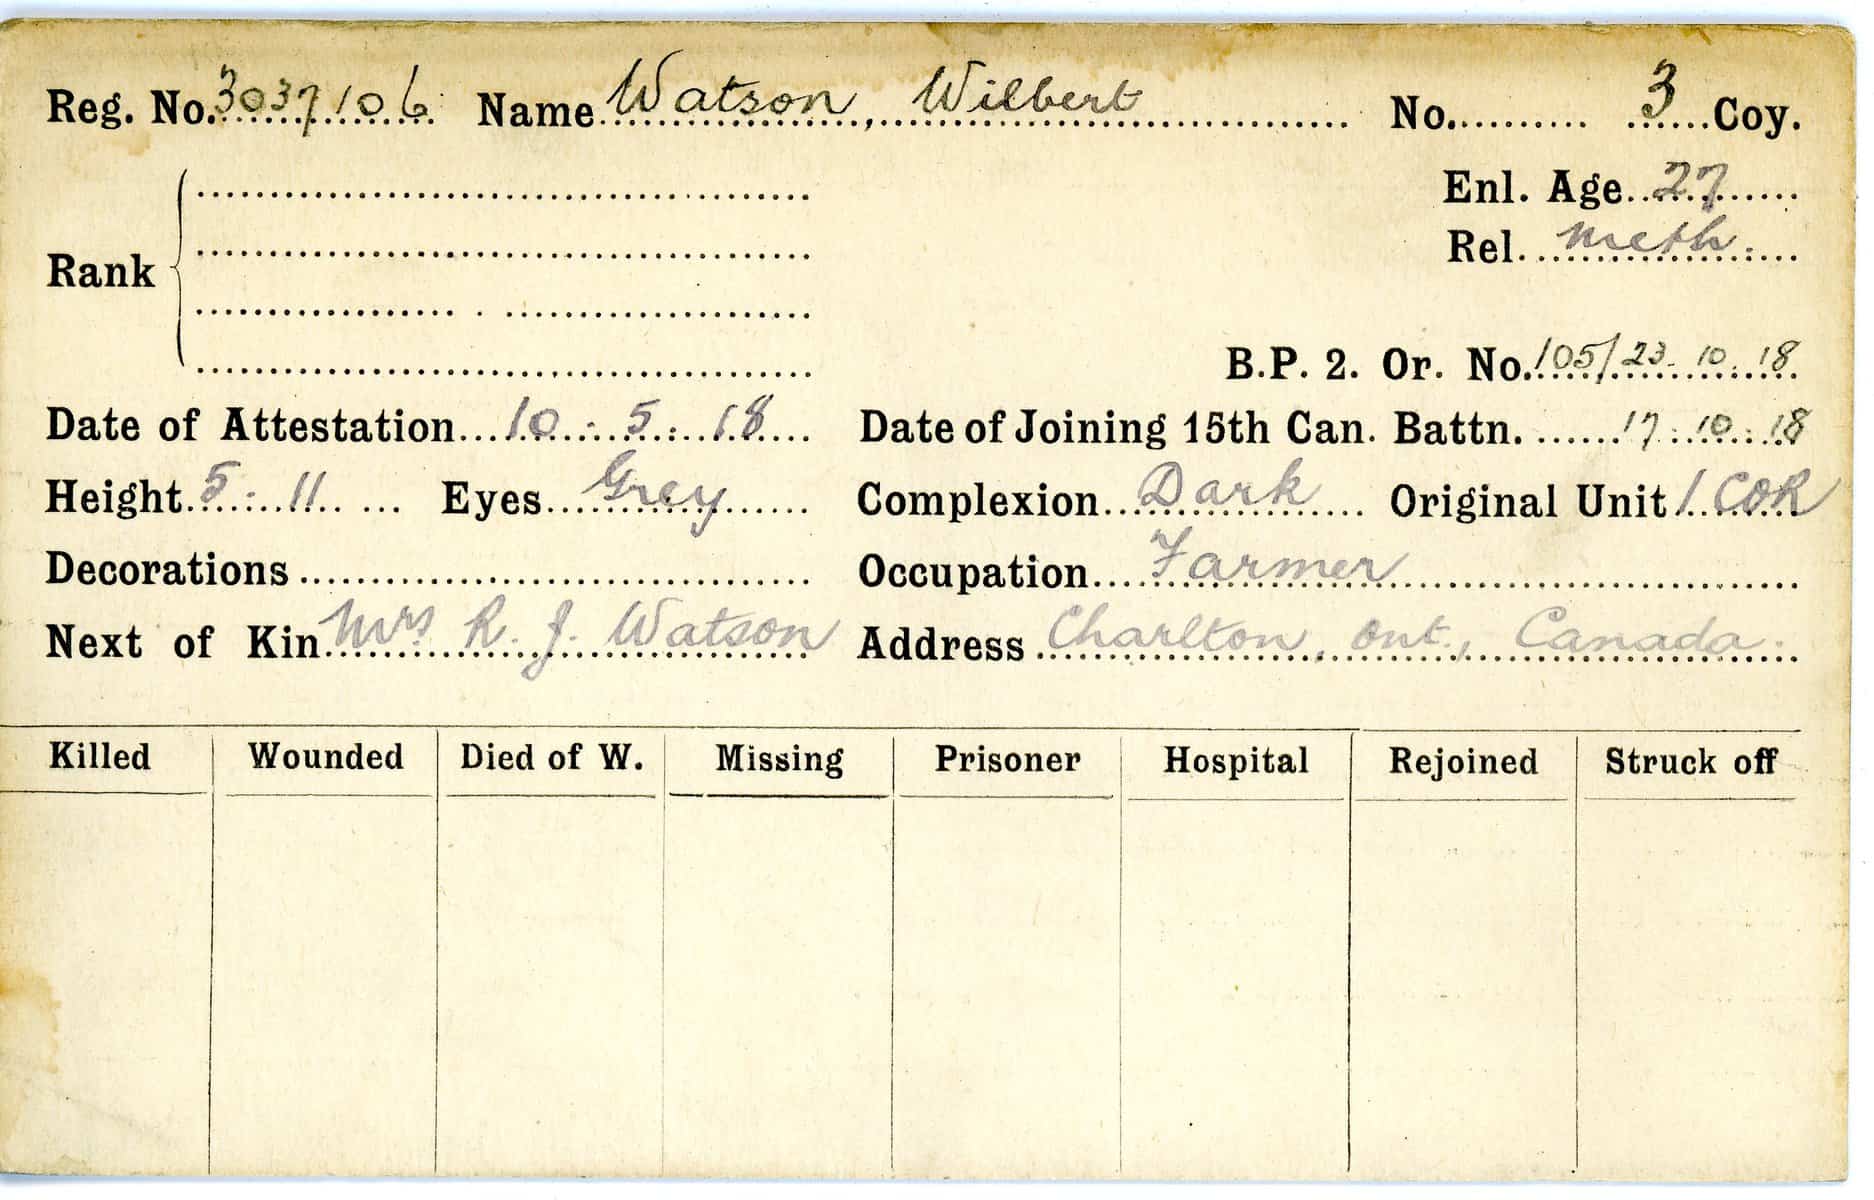 Reg. No. 3037106 Name Watson, Wilbert No. 3 Coy.
Enl. Age 27
Rel. Meth.
Rank
B.P. 2. Or. No. 105/23.10.18
Date of Attestation 10.5.18 Date of Joining 15th Can. Battn. 17.10.18
Height 5.11 Eyes Grey Complexion Dark Original Unit 1 COR
Decorations Occupation Farmer
Next of Kin Mrs R. J. Watson Address Charlton, Ont., Canada.
Killed Wounded Died of W. Missing Prisoner Hospital Rejoined Struck off